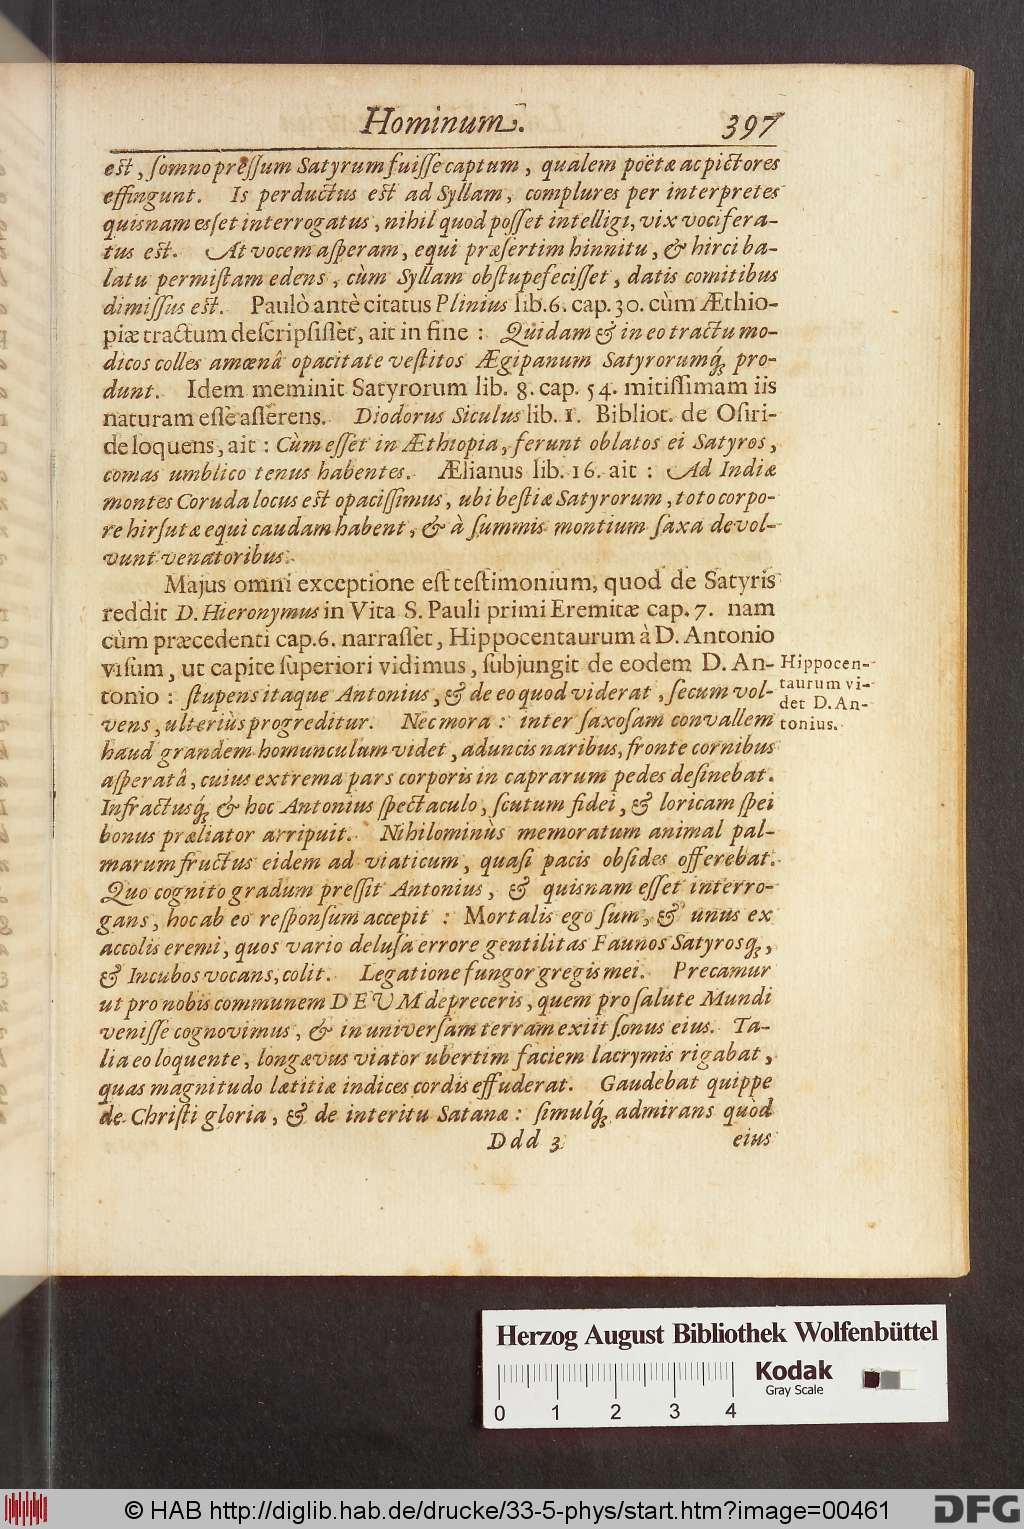 Hominum.
397
est, ſomno preſſum Satyrum fuiſſe captum, qualem poëtæ ac pictores
effingunt. Is perductus est ad Syllam, complures per interpretes
quisnam esſet interrogatus, nihil quod poſſet intelligi, vix vocifera-
tus est. At vocem aſperam, equi præſertim hinnitu, & hirci ba-
latu permiſtam edens, cùm Syllam obſtupefeciſſet, datis comitibus
dimiſſus est. Paulò antè citatus Plinius lib. 6. cap. 30. cùm Æthio-
piæ tractum deſcripſiſſet, ait in fine : Quidam & in eo tractu mo-
dicos colles amœnâ opacitate veſtitos Ægipanum Satyrorumq́; pro-
dunt. Idem meminit Satyrorum lib. 8. cap. 54. mitiſſimam iis
naturam eſſe aſſerens. Diodorus Siculus lib. 1. Bibliot. de Oſiri-
de loquens, ait : Cùm eſſet in Æthiopia, ferunt oblatos ei Satyros,
comas umblico tenus habentes. Ælianus lib. 16. ait : Ad Indiæ
montes Coruda locus est opaciſſimus, ubi beſtiæ Satyrorum, toto corpo-
re hirſutæ equi caudam habent, & à ſummis montium ſaxa devol-
vunt venatoribus.
Majus omni exceptione eſt teſtimonium, quod de Satyris
reddit D. Hieronymus in Vita S. Pauli primi Eremitæ cap. 7. nam
cùm præcedenti cap. 6. narraſſet, Hippocentaurum à D. Antonio
viſum, ut capite ſuperiori vidimus, ſubjungit de eodem D. An-
tonio : ſtupens itaque Antonius, & de eo quod viderat, ſecum vol-
vens, ulteriùs progreditur. Nec mora : inter ſaxoſam convallem
haud grandem homunculum videt, aduncis naribus, fronte cornibus
aſperatâ, cuius extrema pars corporis in caprarum pedes deſinebat.
Infractusq́; & hoc Antonius ſpectaculo, ſcutum fidei, & loricam ſpei
bonus præliator arripuit. Nihilominùs memoratum animal pal-
marum fructus eidem ad viaticum, quaſi pacis obſides offerebat.
Quo cognito gradum preſſit Antonius, & quisnam eſſet interro-
gans, hoc ab eo reſponſum accepit : Mortalis ego ſum, & unus ex
accolis eremi, quos vario deluſa errore gentilitas Faunos Satyrosq́;,
& Incubos vocans, colit. Legatione fungor gregis mei. Precamur
ut pro nobis communem DEUM depreceris, quem pro ſalute Mundi
veniſſe cognovimus, & in univerſam terram exiit ſonus eius. Ta-
lia eo loquente, longævus viator ubertim faciem lacrymis rigabat,
quas magnitudo lætitiæ indices cordis effuderat. Gaudebat quippe
de Chriſti gloria, & de interitu Satanæ : ſimulq́; admirans quòd
Ddd 3
eius
Hippocen-
taurum vi-
det D. An-
tonius.
Herzog August Bibliothek Wolfenbüttel
Kodak
Gray Scale
0 1 2 3 4
© HAB http://diglib.hab.de/drucke/33-5-phys/start.htm?image=00461
DFG